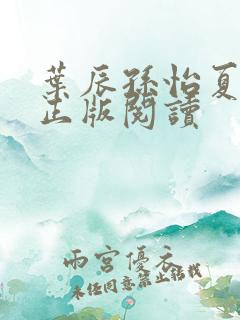 葉辰孫怡夏
正版閱讀
雨宮優衣
未任同意禁止轉載